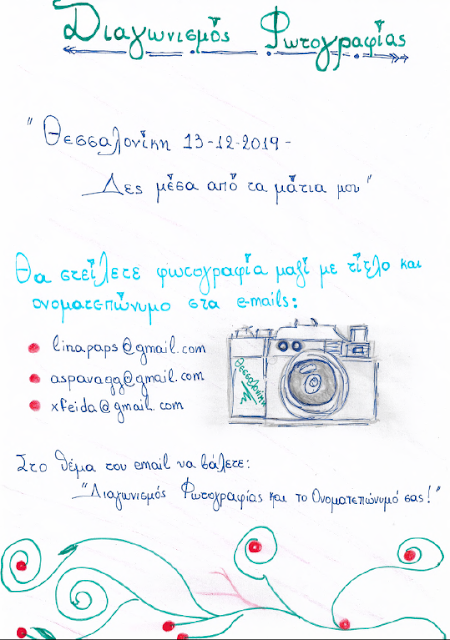 Διαγωνισμός Φωτογραφίας
"Θεσσαλονίκη 13-12-2019-
Δες μέσα από τα μάτια μου"
Θα στείλετε φωτογραφία μαζί με τίτλο και
ονοματεπώνυμο στα e-mails:
linapaps@gmail.com
aspavagg@gmail.com
xfeida@gmail.com
Θεσσαλονίκη
Στο θέμα του email να βάλετε:
"Διαγωνισμός Φωτογραφίας και το Ονοματεπώνυμό σας!"